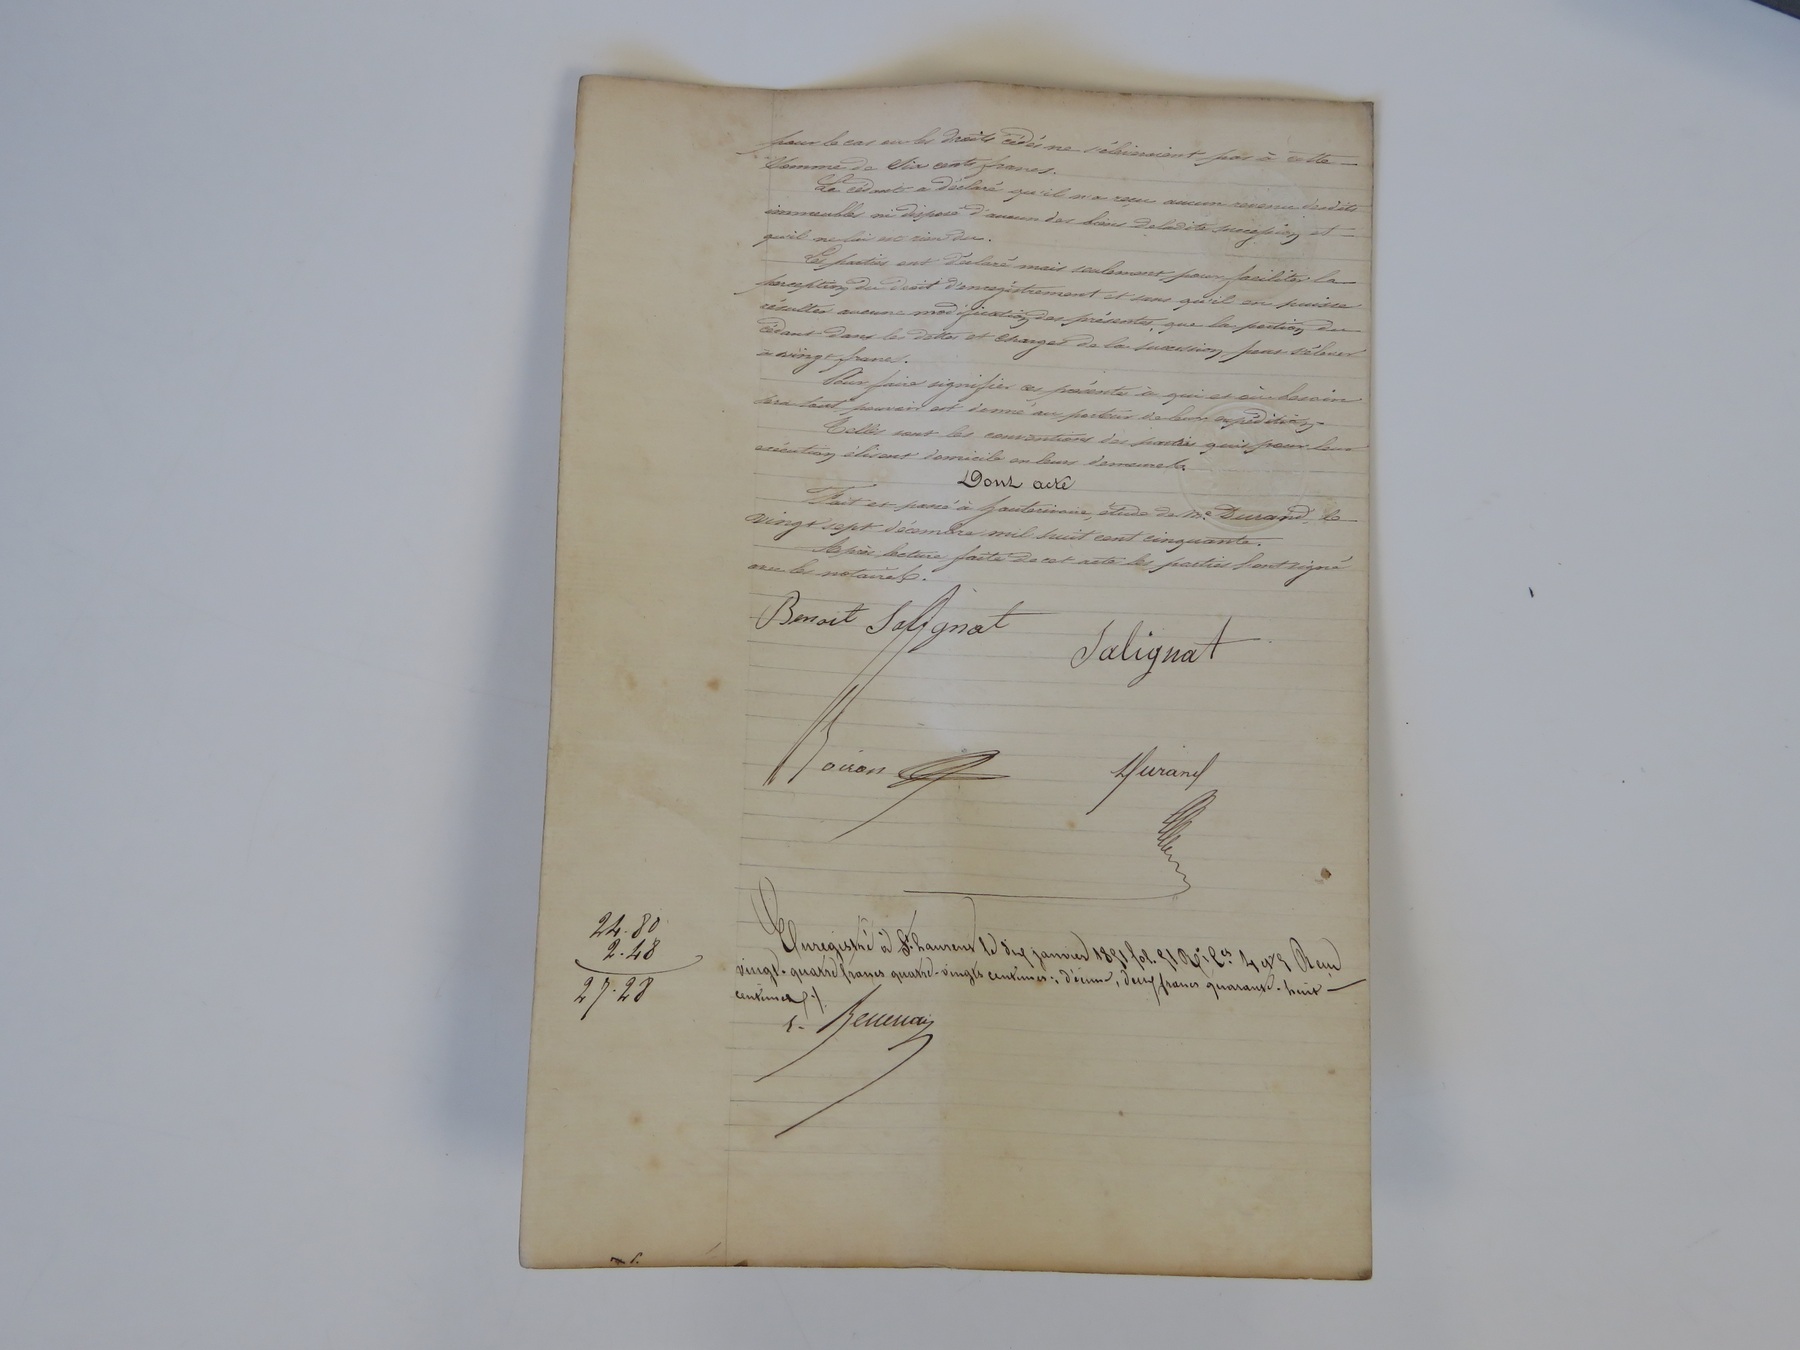 pour le cas ou les droits cédés ne s'éleveraient pas à cette
somme de Six cents francs.
Le cédant a déclaré qu'il n'a reçu aucun revenu desdits
immeubles ni disposé d'aucun des biens de ladite succession et
qu'il ne lui est rien du.
Les parties ont déclaré mais seulement pour faciliter la
perception du droit d'enregistrement et sans qu'il en puisse
résulter aucune modification des présentes, que la portion du
cédant dans les dettes et charges de la succession peut s'élever
à vingt francs.
Pour faire signifier ces présentes à qui et où besoin
sera tout pouvoir est donné au porteur de leur expédition.
Telles sont les conventions des parties qui pour leur
exécution élisent domicile en leurs demeures.
Dont acte
Fait et passé à hauterivoire, étude de Me Durand, le
vingt sept décembre mil huit cent cinquante.
Après lecture faite de cet acte les parties l'ont signé
avec les notaires.
Benoit Salignat
Salignat
Coiron
Durand
24.80
2.48
27.28
Enregistré à St. Laurent le dix janvier 1851 fol. 51 Ro Ces 4 et 5 Reçu
vingt-quatre francs quatre-vingts centimes; décime, deux francs quarante-huit
centimes ./.